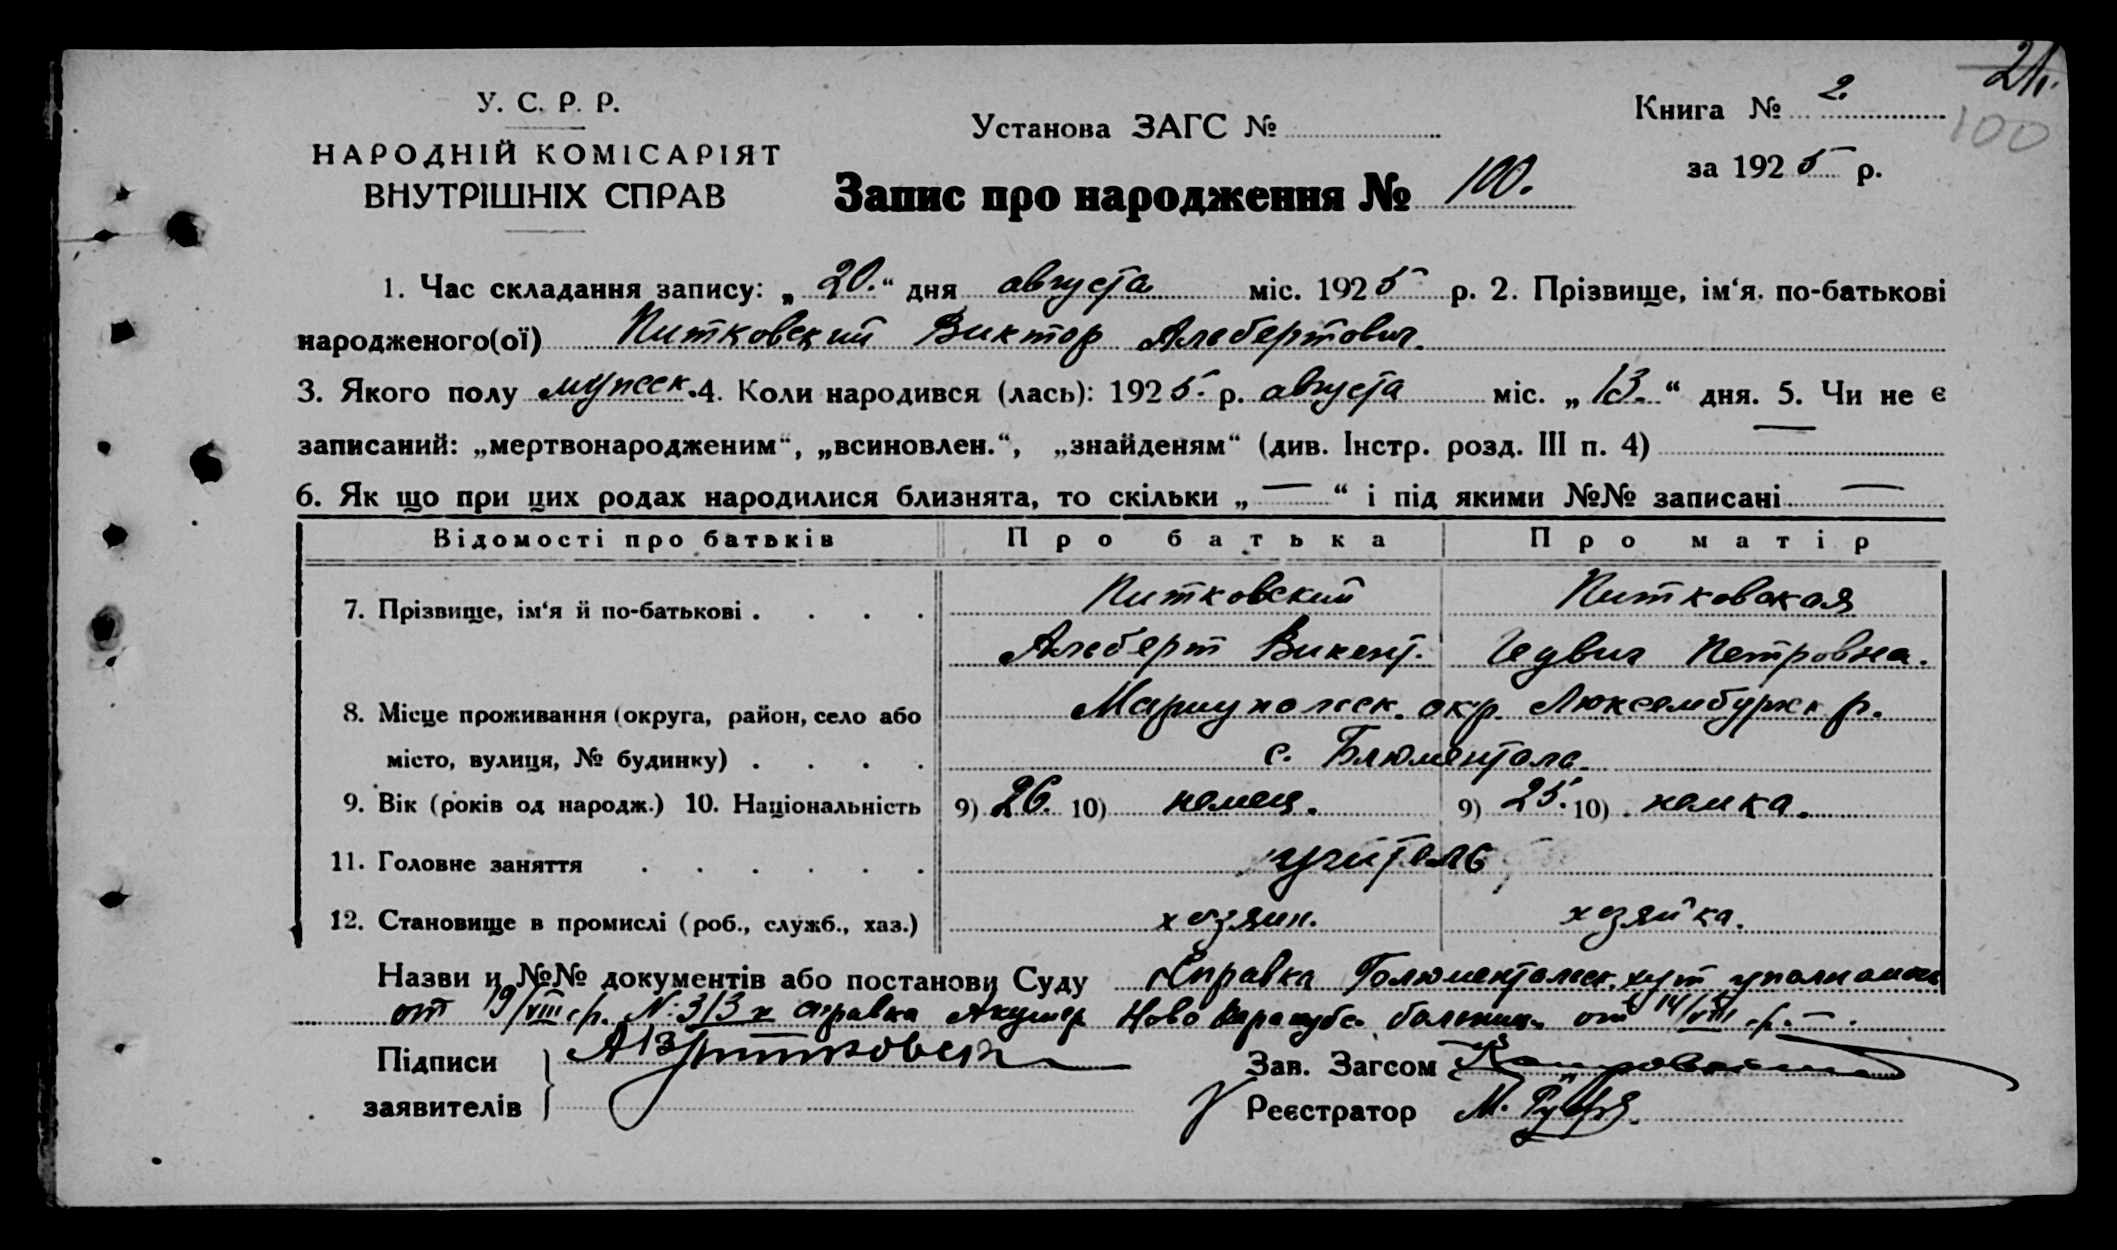 21.
100
У. С. Р. Р.
НАРОДНІЙ КОМІСАРІЯТ
ВНУТРІШНІХ СПРАВ
Установа ЗАГС №
Книга № 2.
за 1925 р.
Запис про народження № 100.
1. Час складання запису: „20.“ дня августа міс. 1925 р. 2. Прізвище, ім‘я. по-батькові
народженого(ої) Питковский Виктор Альбертович.
3. Якого полу мужск. 4. Коли народився (лась): 1925. р. августа міс. „13.“ дня. 5. Чи не є
записаний: „мертвонародженим“, „всиновлен.“, „знайденям“ (див. Інстр. розд. III п. 4) —
6. Як що при цих родах народилися близнята, то скільки „—“ і під якими №№ записані —
Відомості про батьків Про батька Про матір
7. Прізвище, ім‘я й по-батькові . . . . Питковский Питковская
Альберт Викент. Петровна.
8. Місце проживання (округа, район, село або Мариупольск. окр. Люксембургск р.
місто, вулиця, № будинку) . . . . с. Блюменталь.
9. Вік (років од народж.) 10. Національність 9) 26. 10) немец. 9) 25. 10) немка.
11. Головне заняття . . . . . . учитель
12. Становище в промислі (роб., служб., хаз.) хозяин. хозяйка.
Назви и №№ документів або постанови Суду Справка хут
от 19/VIII с/р. N. 313 и справка Акушер Ново больниц. от 14/VIII
Підписи
заявителів
Зав. Загсом
Реєстратор М.